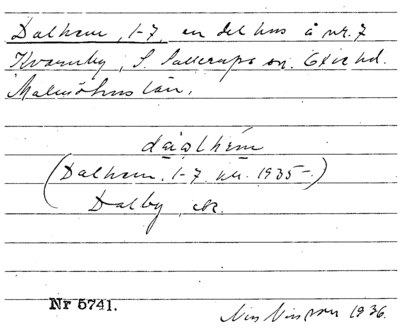 Dalhem, 1-7, en del hus å nr. 7
Kvarnby, S. Sallerups sn. Oxie hd.
Malmöhus län.
(Dalhem, 1-7 1935-.)
Dalby, sk.
Nr 5741.
1936.